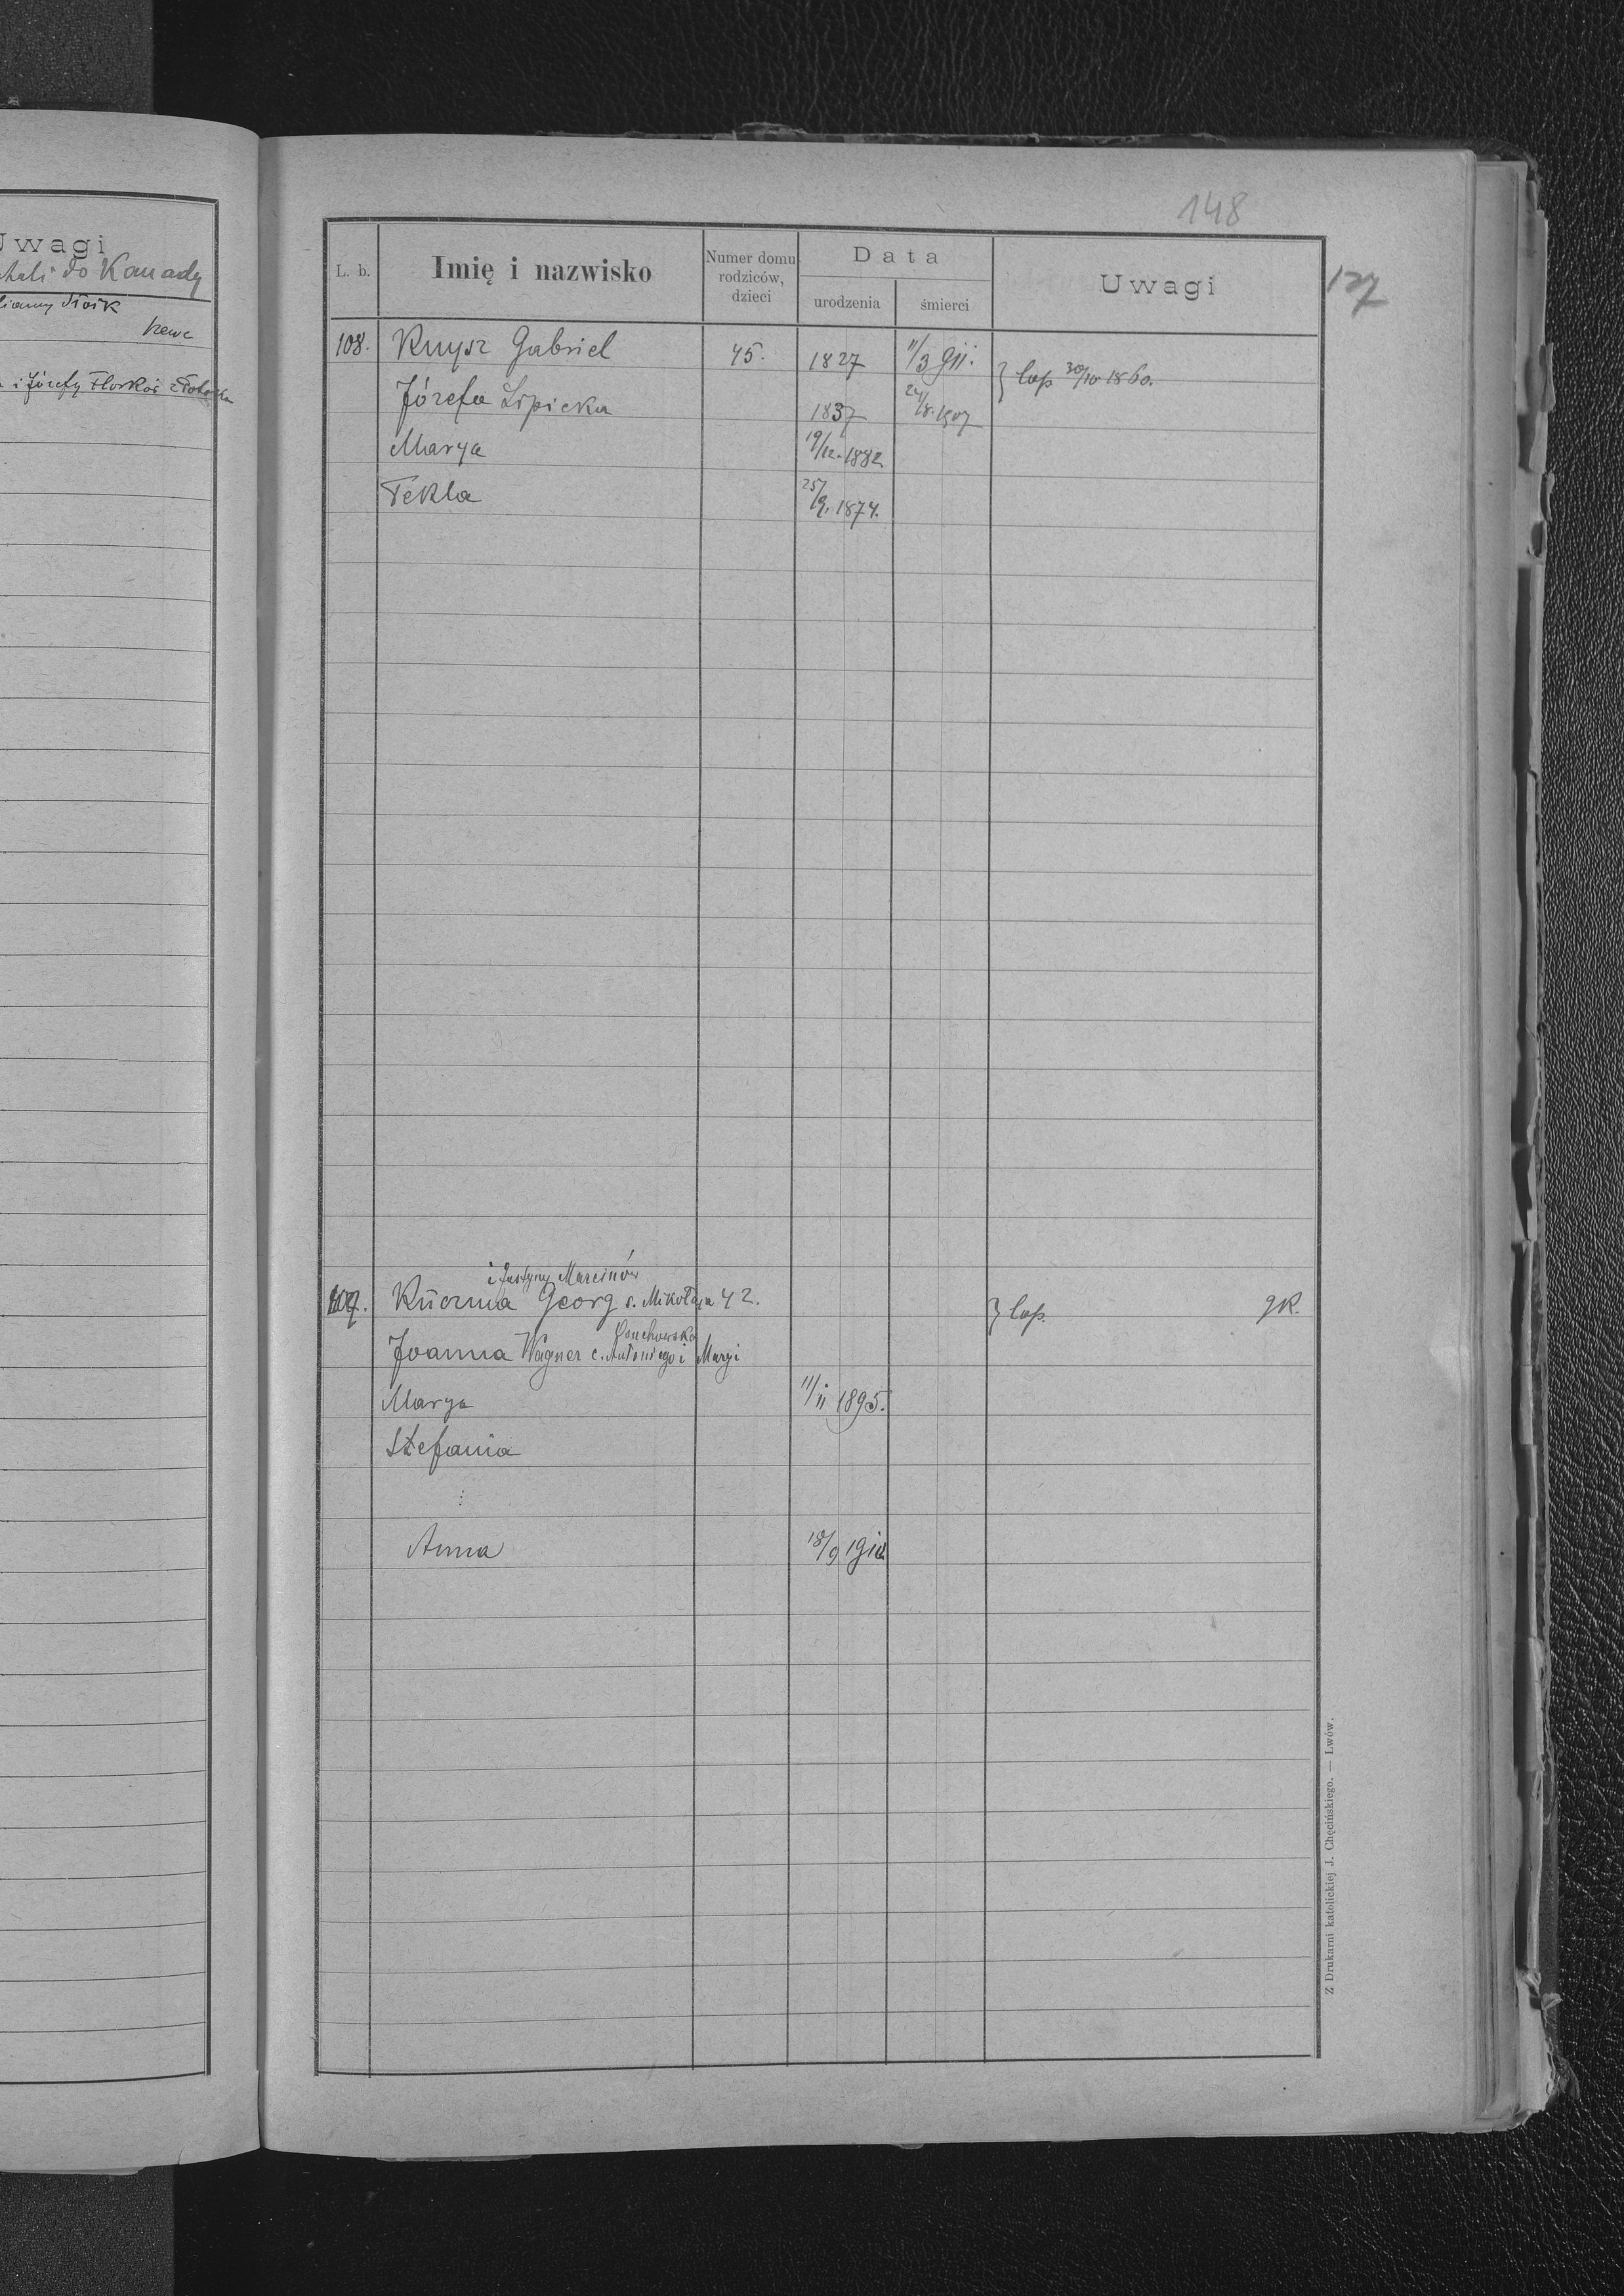 Uwagi
do Kanady
i Józefy
148
127
L. b.
Imię i nazwisko
Numer domu rodziców, dzieci
Data
urodzenia
śmierci
Uwagi
108. Knysz Gabriel 45. 1827 11/3 911. } cop 30/10 1860.
Józefa Lipicka 1837 24/8. 1907
Marya 19/12. 1882
Tekla 25/9. 1874.
i Justyny Marcinów
109. Kuczma Georg s. Mikołaja 42. } cop. gk.
Joanna Wagner c. Antoniego i Maryi
Marya 11/11 1895.
Stefania
Anna 18/9
Z Drukarni katolickiej J. Chęcińskiego. — Lwów.